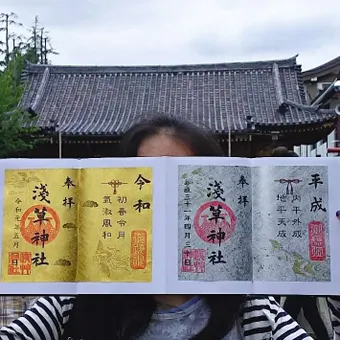 平成
内平外成
地平天成
奉拝
浅草神社
平成三十一年四月三十日
令和
初春令月
氣淑風和
奉拝
浅草神社
令和元年五月